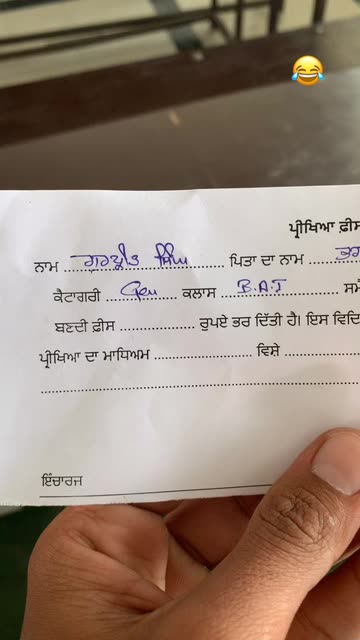 ਪ੍ਰੀਖਿਆ ਫ਼ੀਸ
ਨਾਮ ਗੁਰਪ੍ਰੀਤ ਸਿੰਘ ਪਿਤਾ ਦਾ ਨਾਮ
ਕੈਟਾਗਰੀ Gen ਕਲਾਸ B.A.I
ਬਣਦੀ ਫ਼ੀਸ ਰੁਪਏ ਭਰ ਦਿੱਤੀ ਹੈ। ਇਸ
ਪ੍ਰੀਖਿਆ ਦਾ ਮਾਧਿਅਮ ਵਿਸ਼ੇ
ਇੰਚਾਰਜ